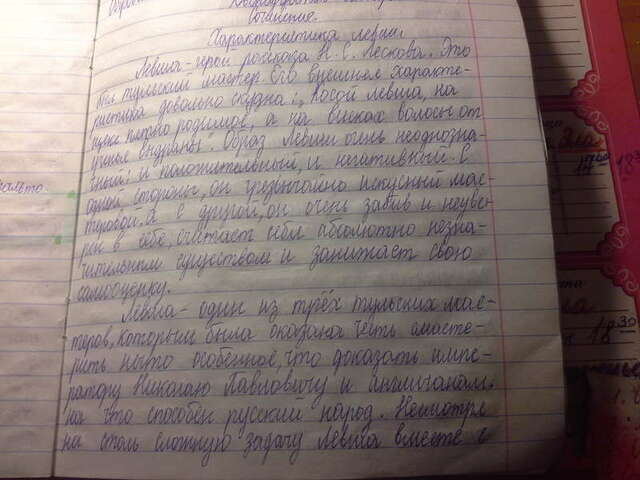 Сочинение.
Характеристика левши
Левша - герой рассказа Н. С. Лескова. Это
был тульский мастер Его внешная характе-
ристика довольно скудна: „косой левша, на
щеке пятно родимое, а на висках волосы от
учения выдраны". Образ Левши очень неоднозна-
чный: и положительный, и негативный. С
одной стороны, он чрезвычайно искусный мас-
теровой. а С другой, он очень забив и неуве-
рен в себе, считает себя абсолютно незна-
чительным существом и занижает свою
самооценку.
Левша - один из трёх тульских мас-
теров, которым была оказана честь смасте-
рить нечто особенное, что доказать импе-
ратору Николаю Павловичу и англичанам.
на что способен русский народ. Несмотря
на столь сложную задачу Левша вместе с
18 30